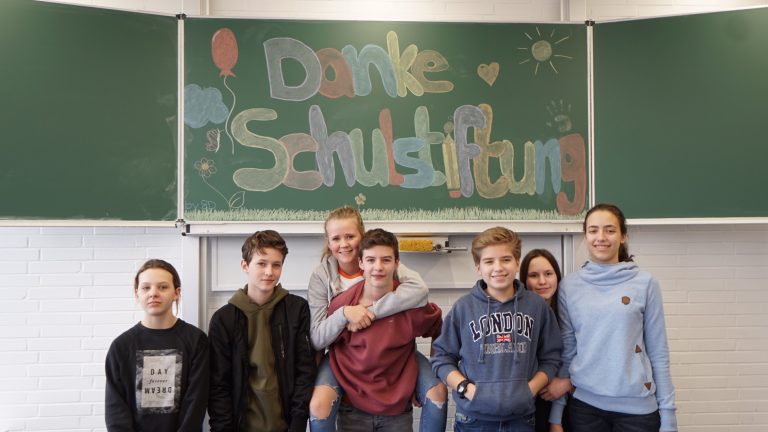 Danke
Schulstiftung
DAY
forever
DREAM
LONDON